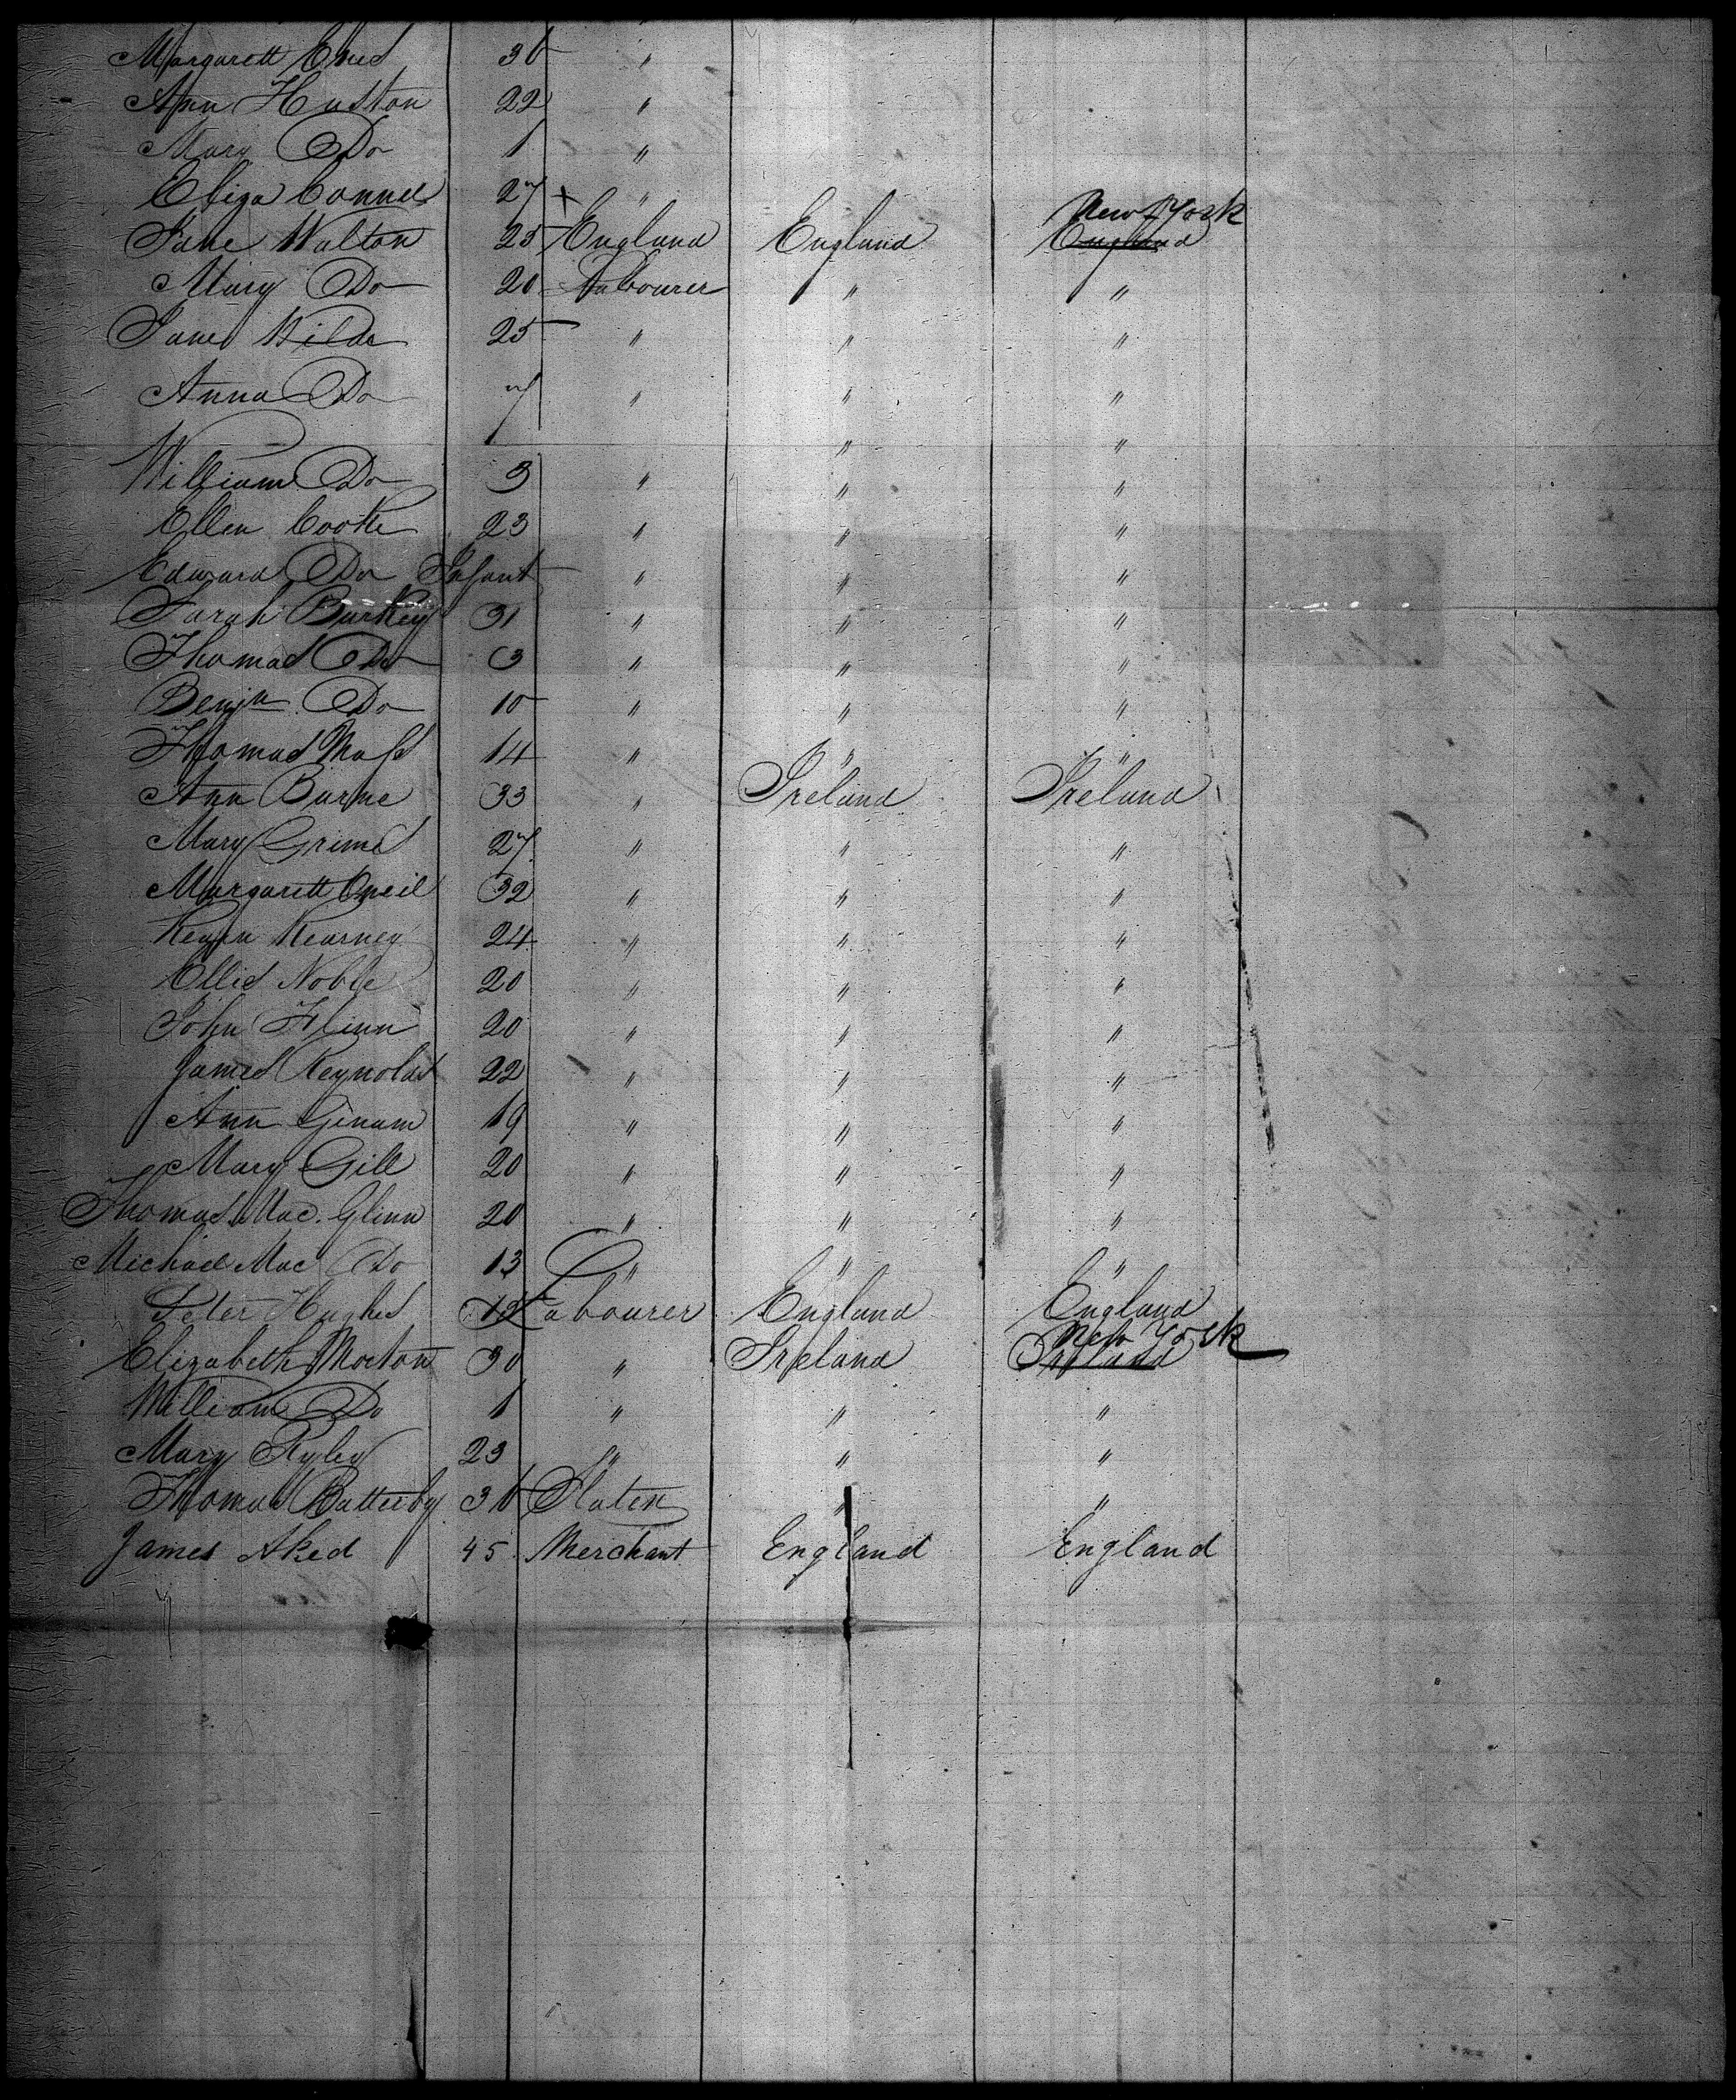 Margarett Ones 36 "
Ann Huston 22 "
Mary Do 1 "
Eliza Connel 27 x "
New York
Jane Walton 25 England England England
Mary Do 20 Labourer " "
James Wilde 25 " " "
Anna Do 7 " " "
" "
William Do 3 " " "
Ellen Cooke 23 " " "
Edward Do Infant " " "
Sarah Burkey 31 " " "
Thomas Do 3 " " "
Benjn Do 10 " " "
Thomas Moss 14 " " "
Ann Burne 33 " Ireland Ireland
Mary Grimes 27 " " "
Margarett Oneil 32 " " "
Kearney 24 " " "
Ellis Noble 20 " " "
John Flinn 20 " " "
James Reynolds 22 " " "
Ann 19 " " "
Mary Gill 20 " " "
Thomas Mac. Glinn 20 " " "
Michael Mac Do 13 " " "
Peter Hughes 13 Labourer England England
New York
Elizabeth Morton 30 " Ireland Ireland
William Do 1 " " "
Mary Ryley 23 " " "
Thomas Battersby 36 Slater " "
James Aked 45 Merchant England England